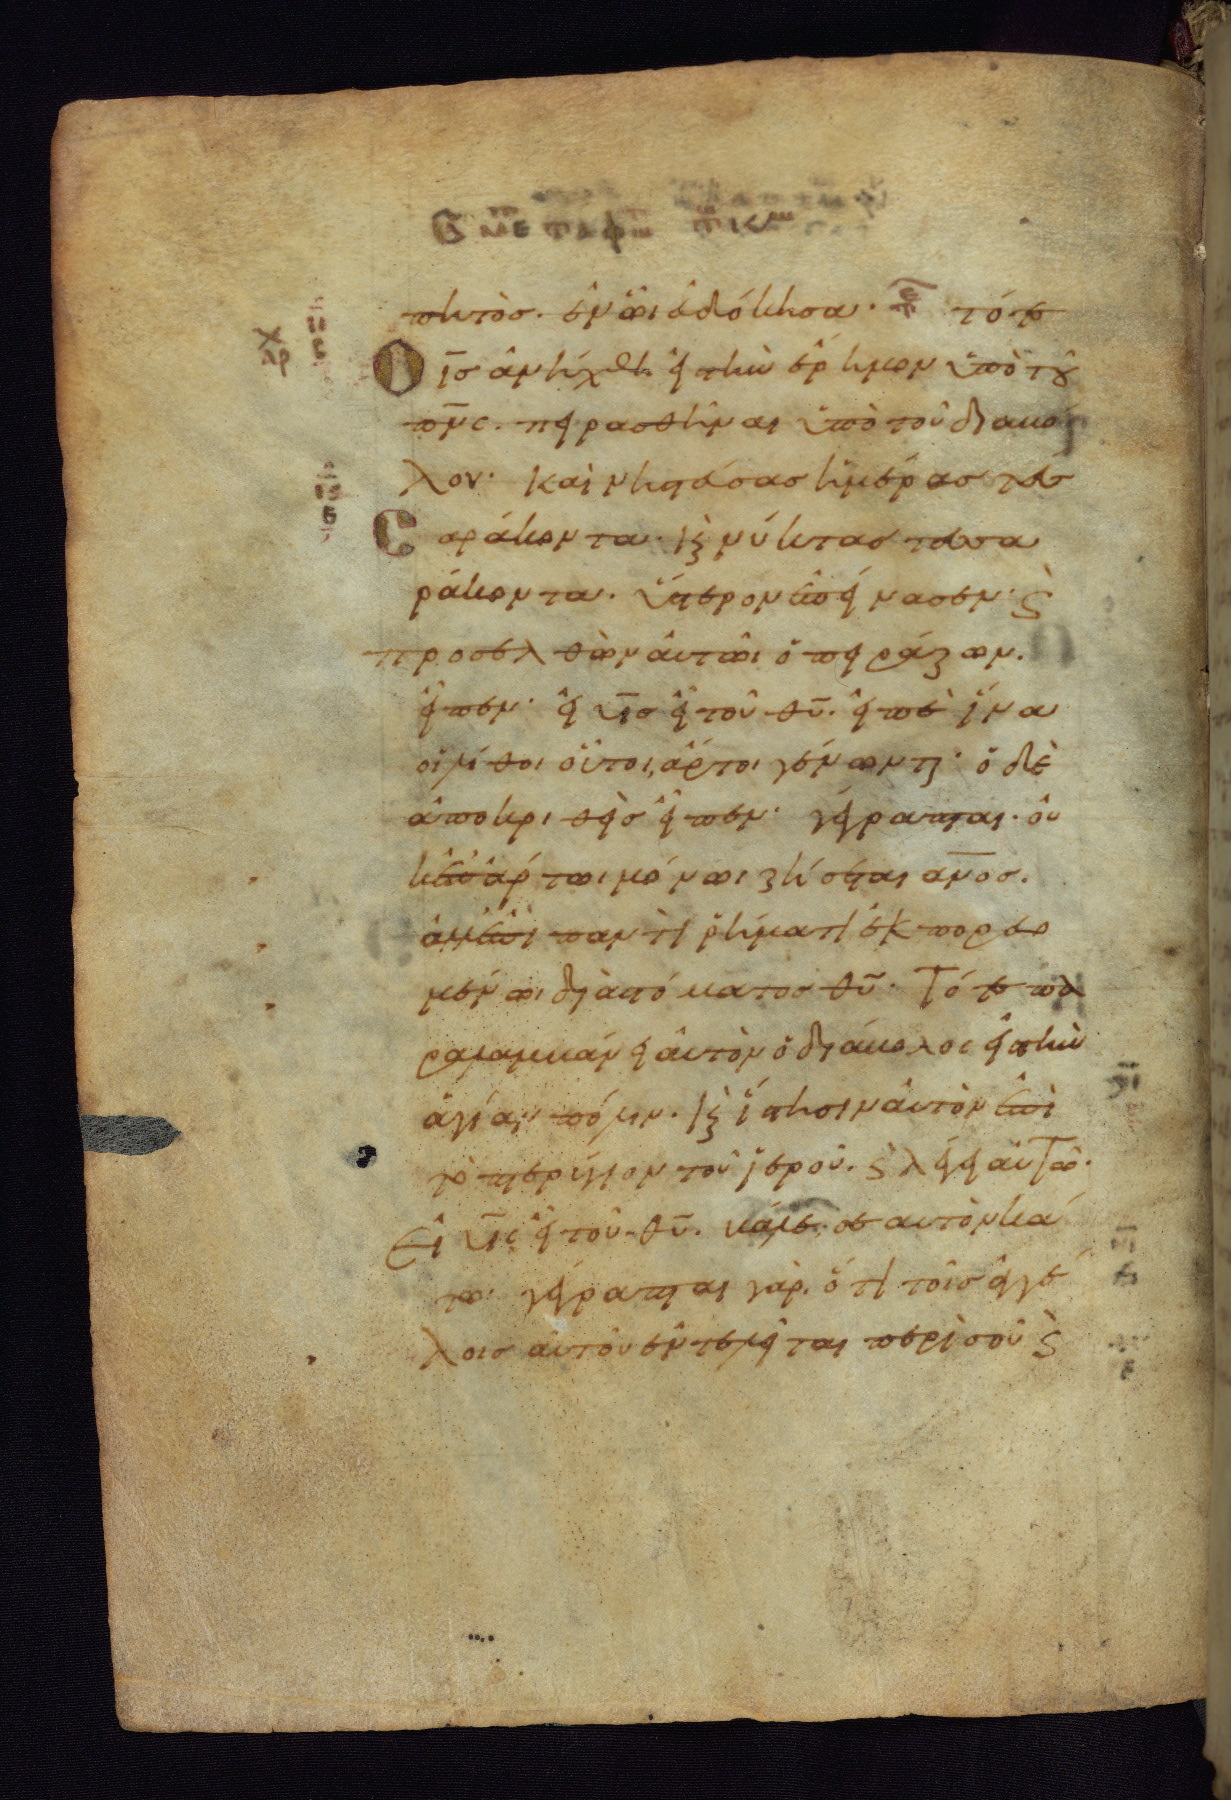 πητὸς. ἐν ὧι εὐδόκησα. τότε
ὁ ι̅ς̅ ἀνήχθη εἰς τὴν ἔρημον ὑπὸ τοῦ
π̅ν̅ς̅. πειρασθῆναι ὑπὸ τοῦ διαβό
λου. καὶ νηστεύσας ἡμέρας τεσ
σαράκοντα. καὶ νύκτας τεσσα
ράκοντα. ὕστερον ἐπείνασεν. καὶ
προσελθὼν αὐτῶι ὁ πειράζων.
εἶπεν. εἰ υ̅ς̅ εἶ τοῦ θ̅υ̅. εἰπὲ ἵνα
οἱ λίθοι οὗτοι, ἄρτοι γένωνται. ὁ δὲ
ἀποκριθεὶς εἶπεν. γέγραπται. οὐ
κ ἐπ' ἄρτωι μόνωι ζήσεται α̅ν̅ο̅ς̅.
ἀλλ' ἐπὶ παντὶ ῥήματι ἐκπορευο
μένωι διὰ στόματος θ̅υ̅. Τότε πα
ραλαμβάνει αὐτὸν ὁ διάβολος εἰς τὴν
ἁγίαν πόλιν. καὶ ἵστησιν αὐτὸν ἐπὶ
τὸ πτερύγιον τοῦ ἱεροῦ. καὶ λέγει αὐτῶ.
Εἰ υ̅ς̅ εἶ τοῦ θ̅υ̅. βάλε σεαυτὸν κά
τω. γέγραπται γὰρ. ὅτι τοῖς ἀγγέ
λοις αὐτοῦ ἐντελεῖται περὶ σοῦ καὶ